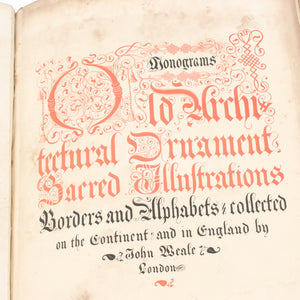 Monograms
Old Archi-
tectural Ornament
Sacred Illustrations
Borders and Alphabets; collected
on the Continent and in England by
John Weale
London